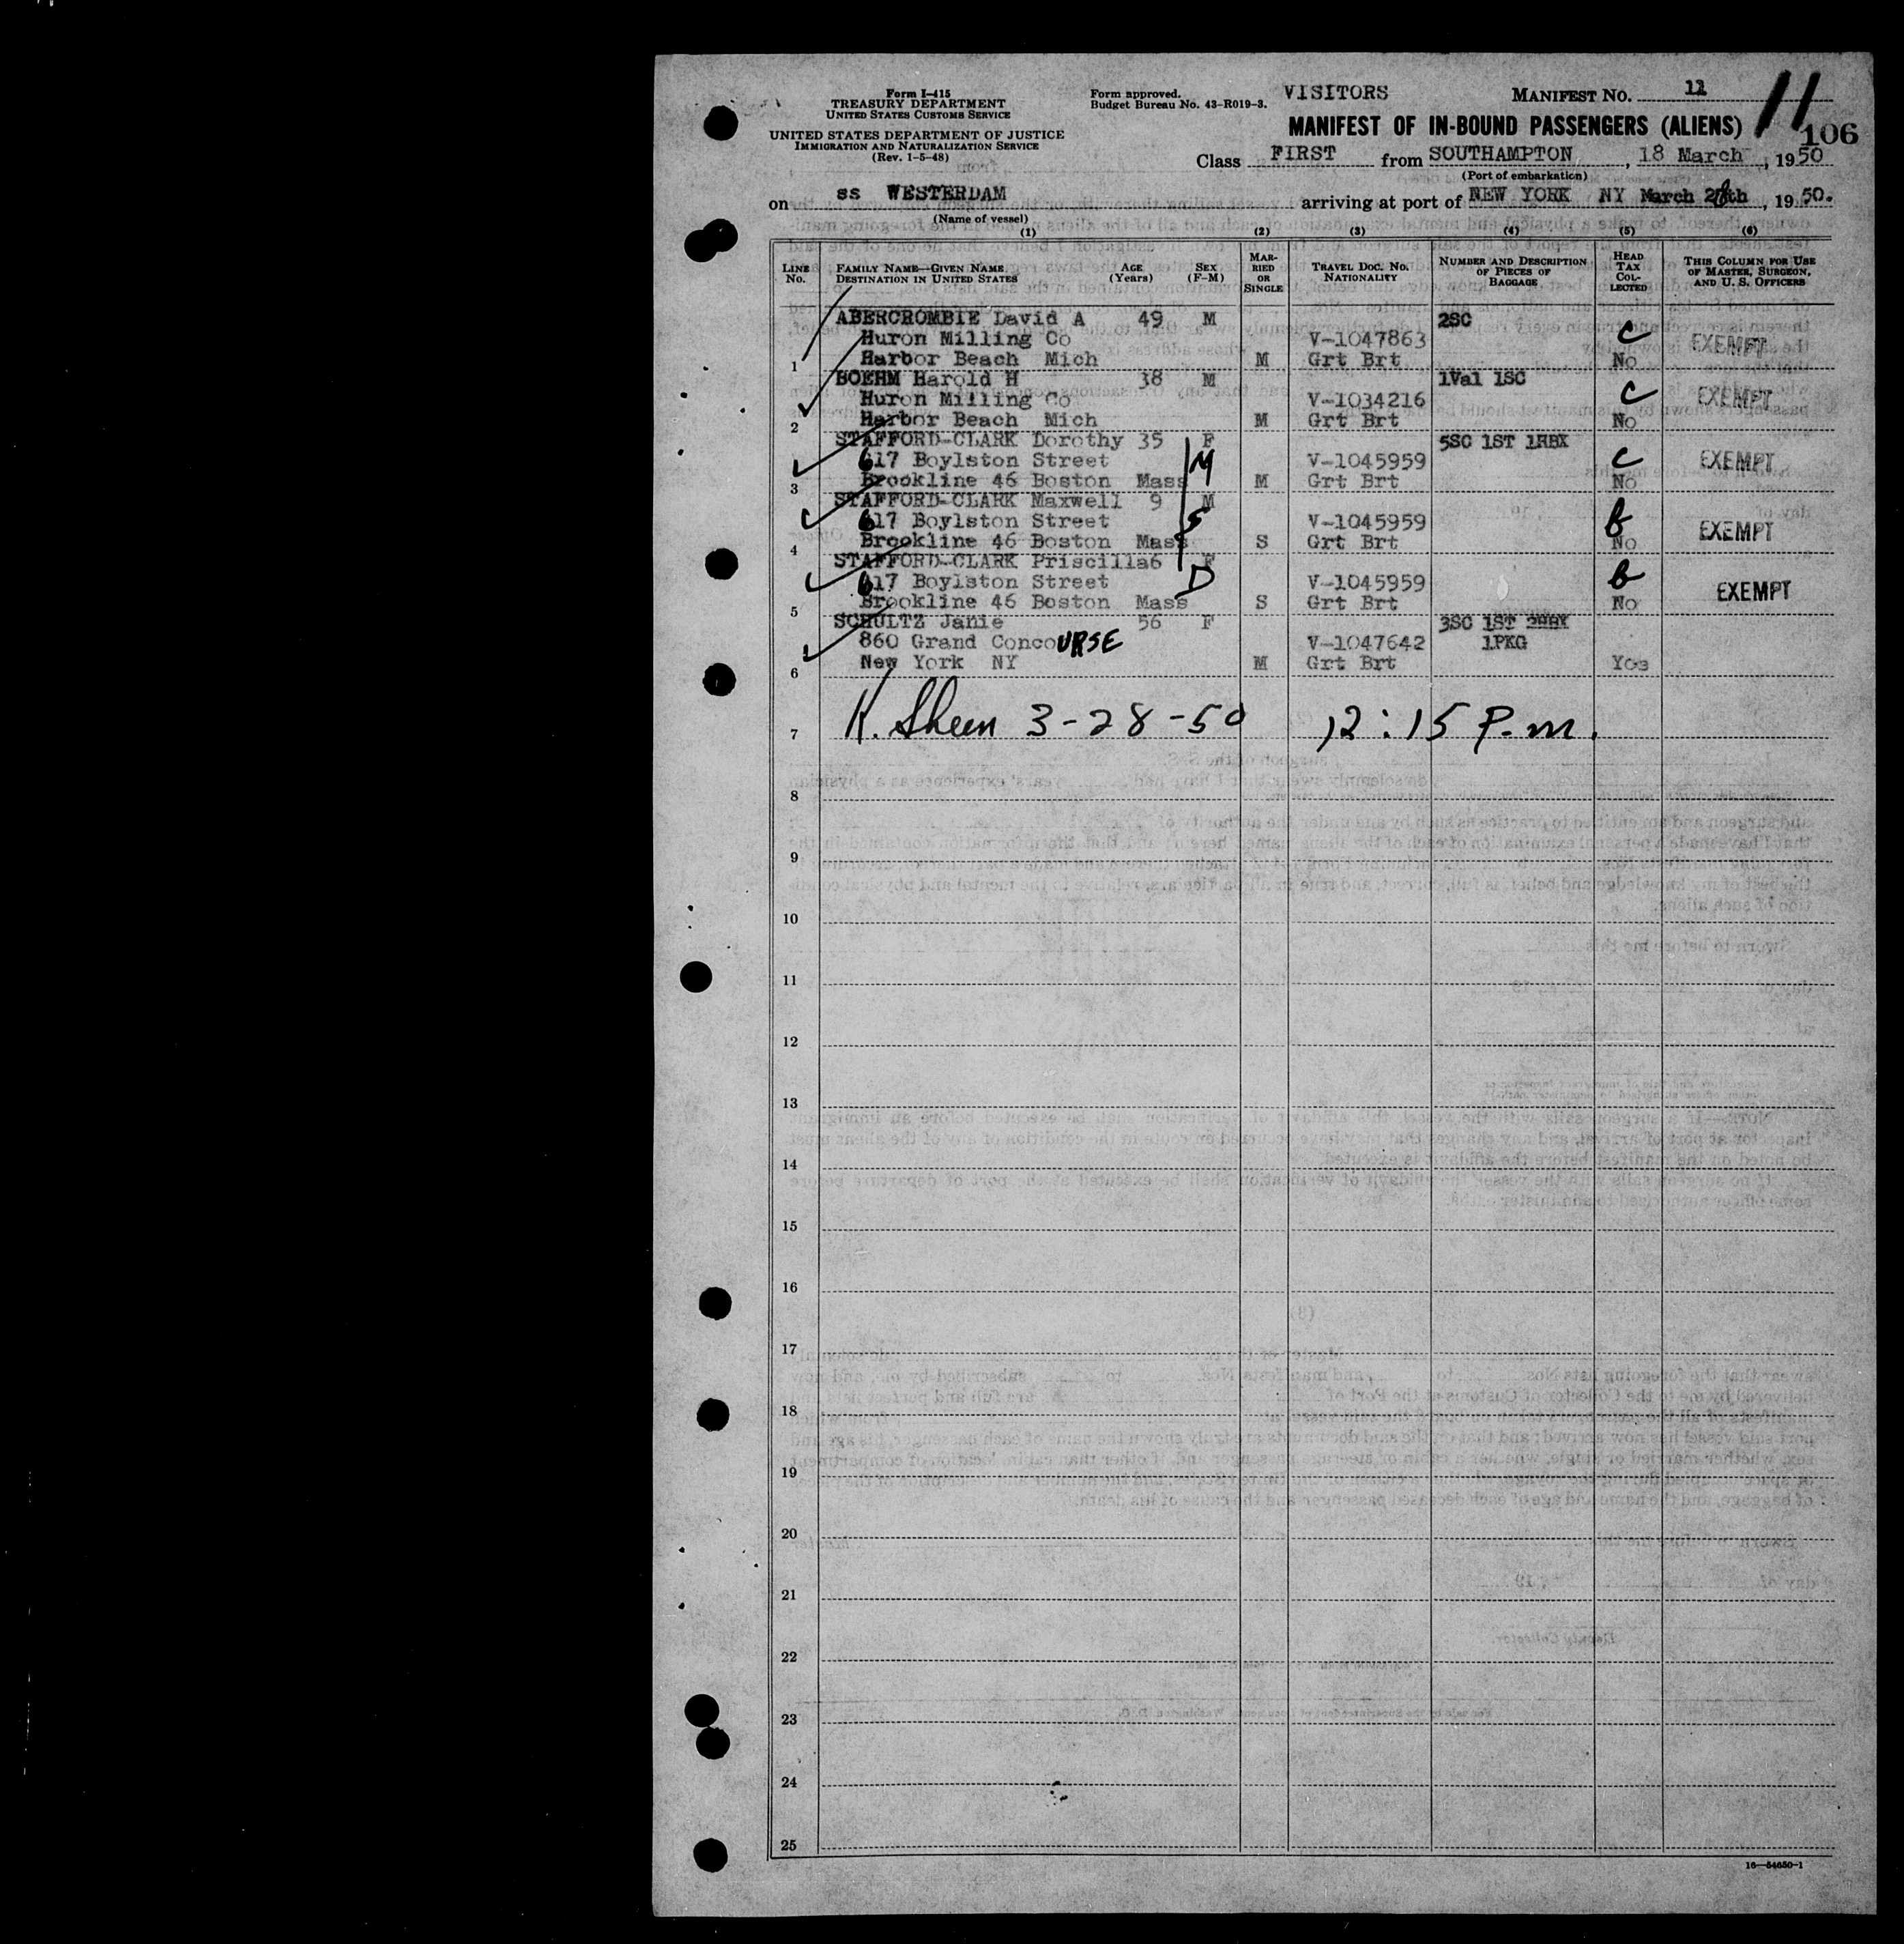 Form I-415
TREASURY DEPARTMENT
UNITED STATES CUSTOMS SERVICE
UNITED STATES DEPARTMENT OF JUSTICE
IMMIGRATION AND NATURALIZATION SERVICE
(Rev. 1-5-48)
Form approved.
Budget Bureau No. 43-R019-3.
VISITORS
MANIFEST NO. 11
11
106
MANIFEST OF IN-BOUND PASSENGERS (ALIENS)
Class FIRST from SOUTHAMPTON, 18 March, 1950
(Port of embarkation)
on ss WESTERDAM arriving at port of NEW YORK NY March 28th, 1950.
(Name of vessel)
(1) (2) (3) (4) (5) (6)
LINE No. FAMILY NAME—GIVEN NAME DESTINATION IN UNITED STATES AGE (Years) SEX (F-M) MARRIED OR SINGLE TRAVEL DOC. NO. NATIONALITY NUMBER AND DESCRIPTION OF PIECES OF BAGGAGE HEAD TAX COLLECTED THIS COLUMN FOR USE OF MASTER, SURGEON, AND U. S. OFFICERS
ABERCROMBIE David A 49 M 2SC
Huron Milling Co V-1047863 C EXEMPT
1 Harbor Beach Mich M Grt Brt No
BOEHM Harold H 38 M 1Val 1SC
Huron Milling Co V-1034216 C EXEMPT
2 Harbor Beach Mich M Grt Brt No
STAFFORD-CLARK Dorothy 35 F 5SC 1ST 1HBX
617 Boylston Street M V-1045959 C EXEMPT
3 Brookline 46 Boston Mass M Grt Brt No
STAFFORD-CLARK Maxwell 9 M
617 Boylston Street S V-1045959 b EXEMPT
4 Brookline 46 Boston Mass S Grt Brt No
STAFFORD-CLARK Priscilla6 F
617 Boylston Street D V-1045959 b EXEMPT
5 Brookline 46 Boston Mass S Grt Brt No
SCHULTZ Janie 56 F 3SC 1ST
860 Grand ConcoURSE V-1047642 1PKG
6 New York NY M Grt Brt Yes
7 K. Sheen 3-28-50 12:15 P.m.
8
9
10
11
12
13
14
15
16
17
18
19
20
21
22
23
24
25
16—54650-1